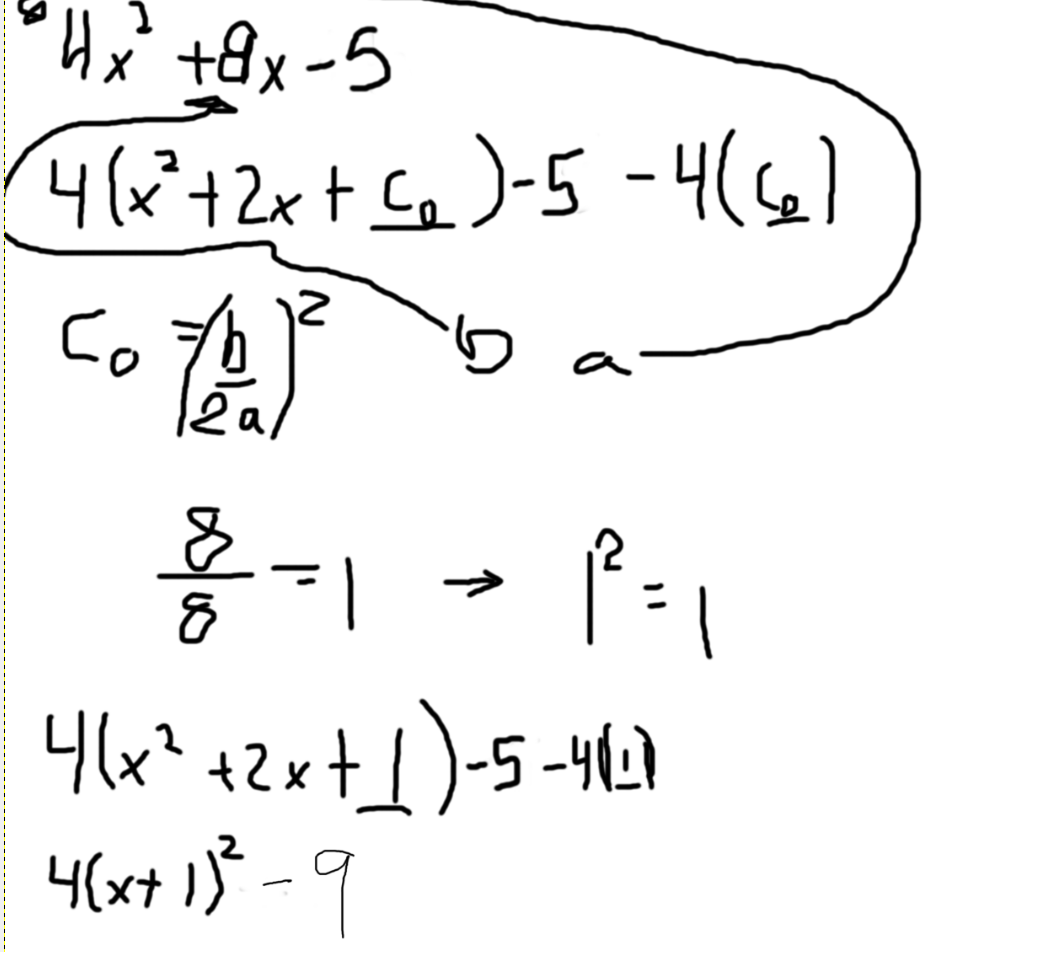 4x² + 8x - 5
4(x² + 2x + C₀) - 5 - 4(C₀)
C₀ = (b/2a)² b a
8/8 = 1 → 1² = 1
4(x² + 2x + 1) - 5 - 4(1)
4(x + 1)² - 9